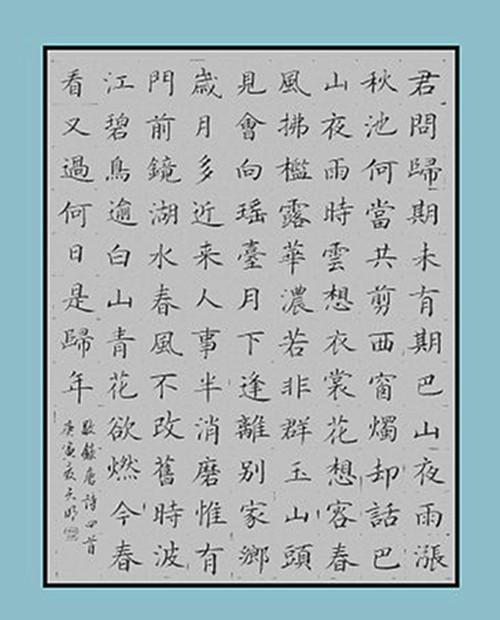 君問歸期未有期巴山夜雨漲
秋池何當共剪西窗燭却話巴
山夜雨時雲想衣裳花想容春
風拂檻露華濃若非群玉山頭
見會向瑶臺月下逢離別家鄉
歲月多近来人事半消磨惟有
門前鏡湖水春風不改舊時波
江碧鳥逾白山青花欲燃今春
看又過何日是歸年
錄唐詩四首
庚寅夜天明